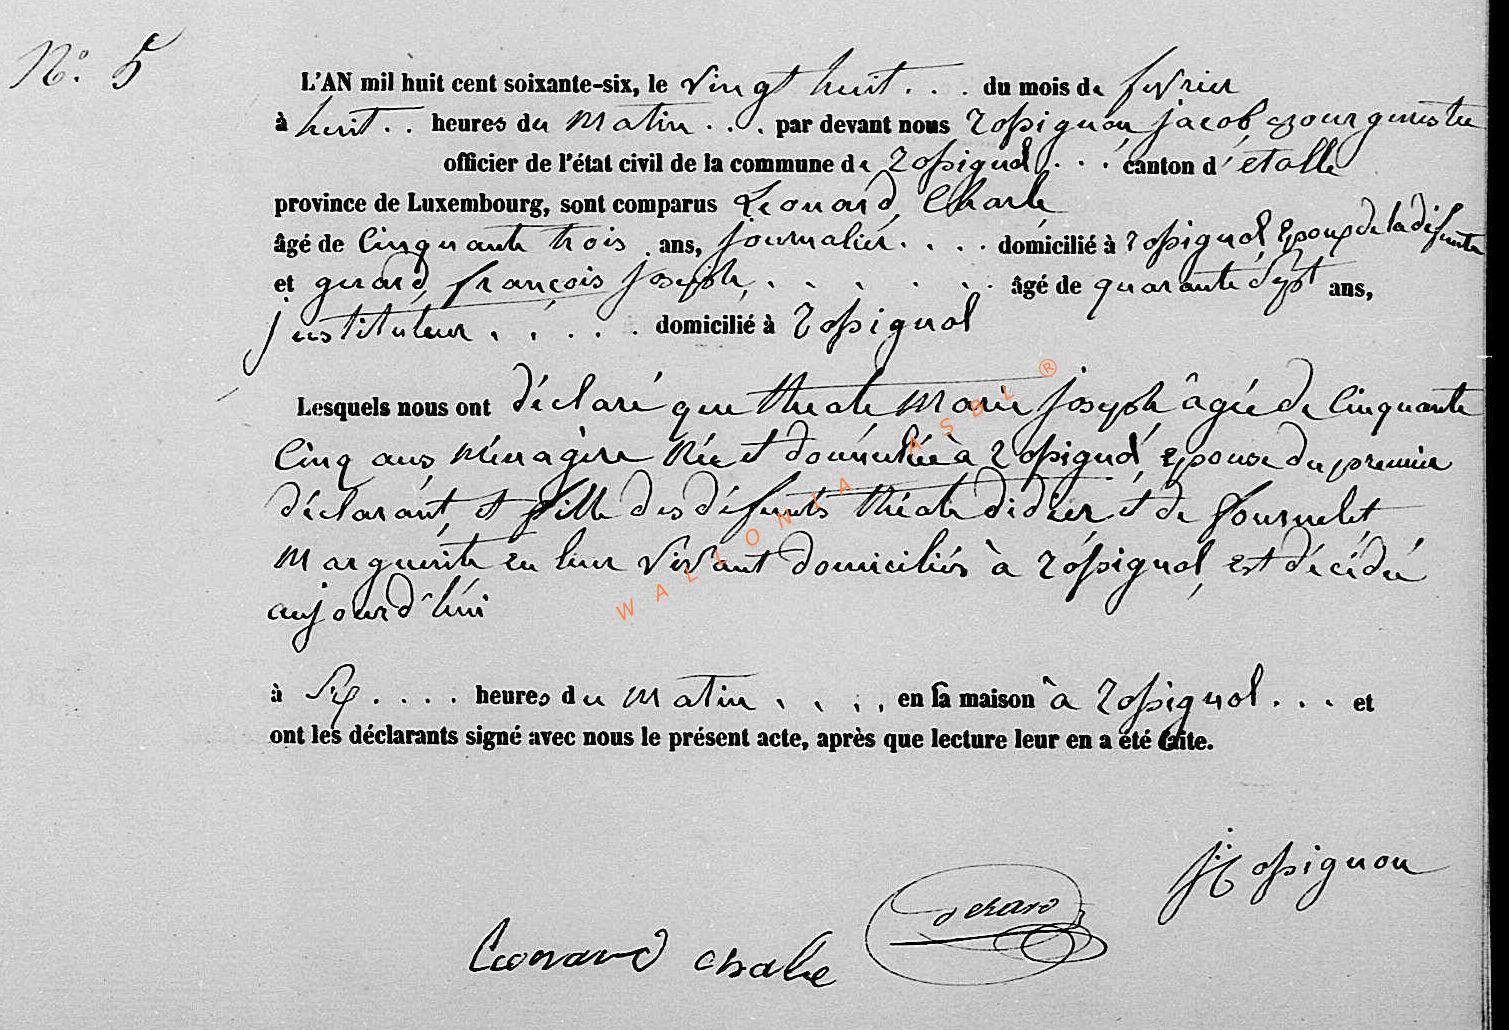 N.º 5
L'AN mil huit cent soixante-six, le vingt huit . . . du mois de fevrier
à huit . . heures du matin . . . par devant nous Rossignon jacob, Bourgmestre
officier de l'état civil de la commune de Rossignol . . . canton d'étalle
province de Luxembourg, sont comparus Léonard, Charle
âgé de cinquante trois ans, journalier . . . . domicilié à rossignol Epoux de la défunte
et gerard, françois joseph, . . . . . . . âgé de quarante sept ans,
jnstituteur . . . . . domicilié à Rossignol
Lesquels nous ont déclaré que théate Marie joseph âgée de Cinquante
Cinq ans ménagère Née et domiciliée à Rossignol, epouse du premier
déclarant, et fille des défunts théate didier et de fournelet
Marguerite en leur vivant domiciliés à Rossignol, est décédée
aujourd'hui
à Six . . . . heures du matin . . . . en sa maison à Rossignol . . . et
ont les déclarants signé avec nous le présent acte, après que lecture leur en a été faite.
J Rossignon
Gerard
Leonard charle
WALLONIA ASBL ®